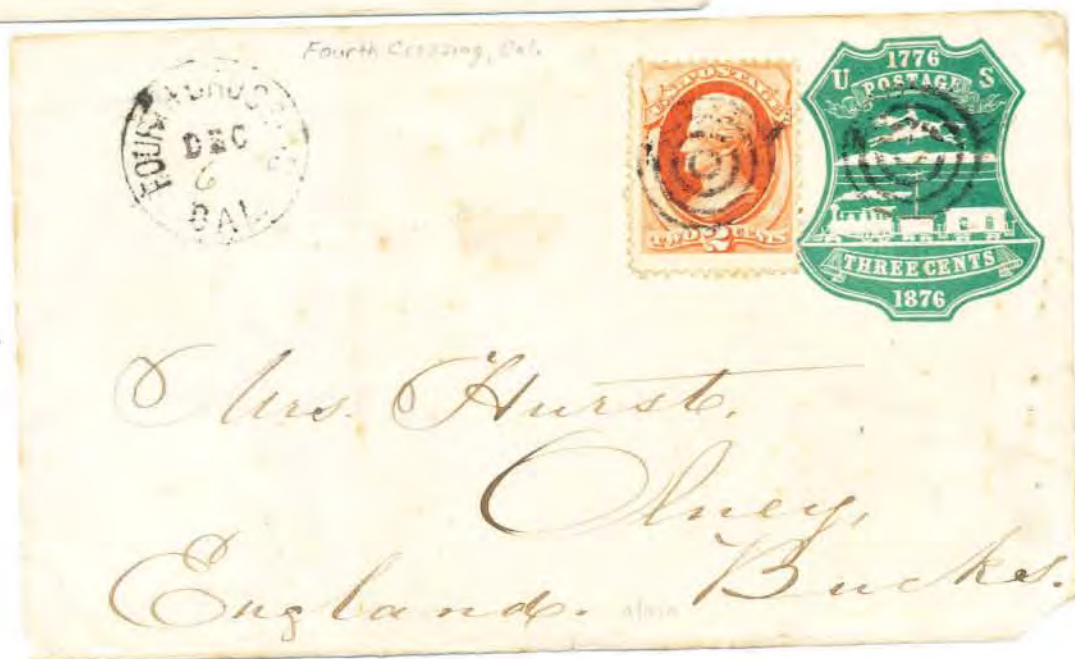 Fourth Crossing, Cal.
FOURTH CROSSING
DEC
6
CAL.
U.S. POSTAGE
TWO 2 CENTS
1776
U S
POSTAGE
THREE CENTS
1876
Mrs. Hurst.
Olney,
Bucks.
England.